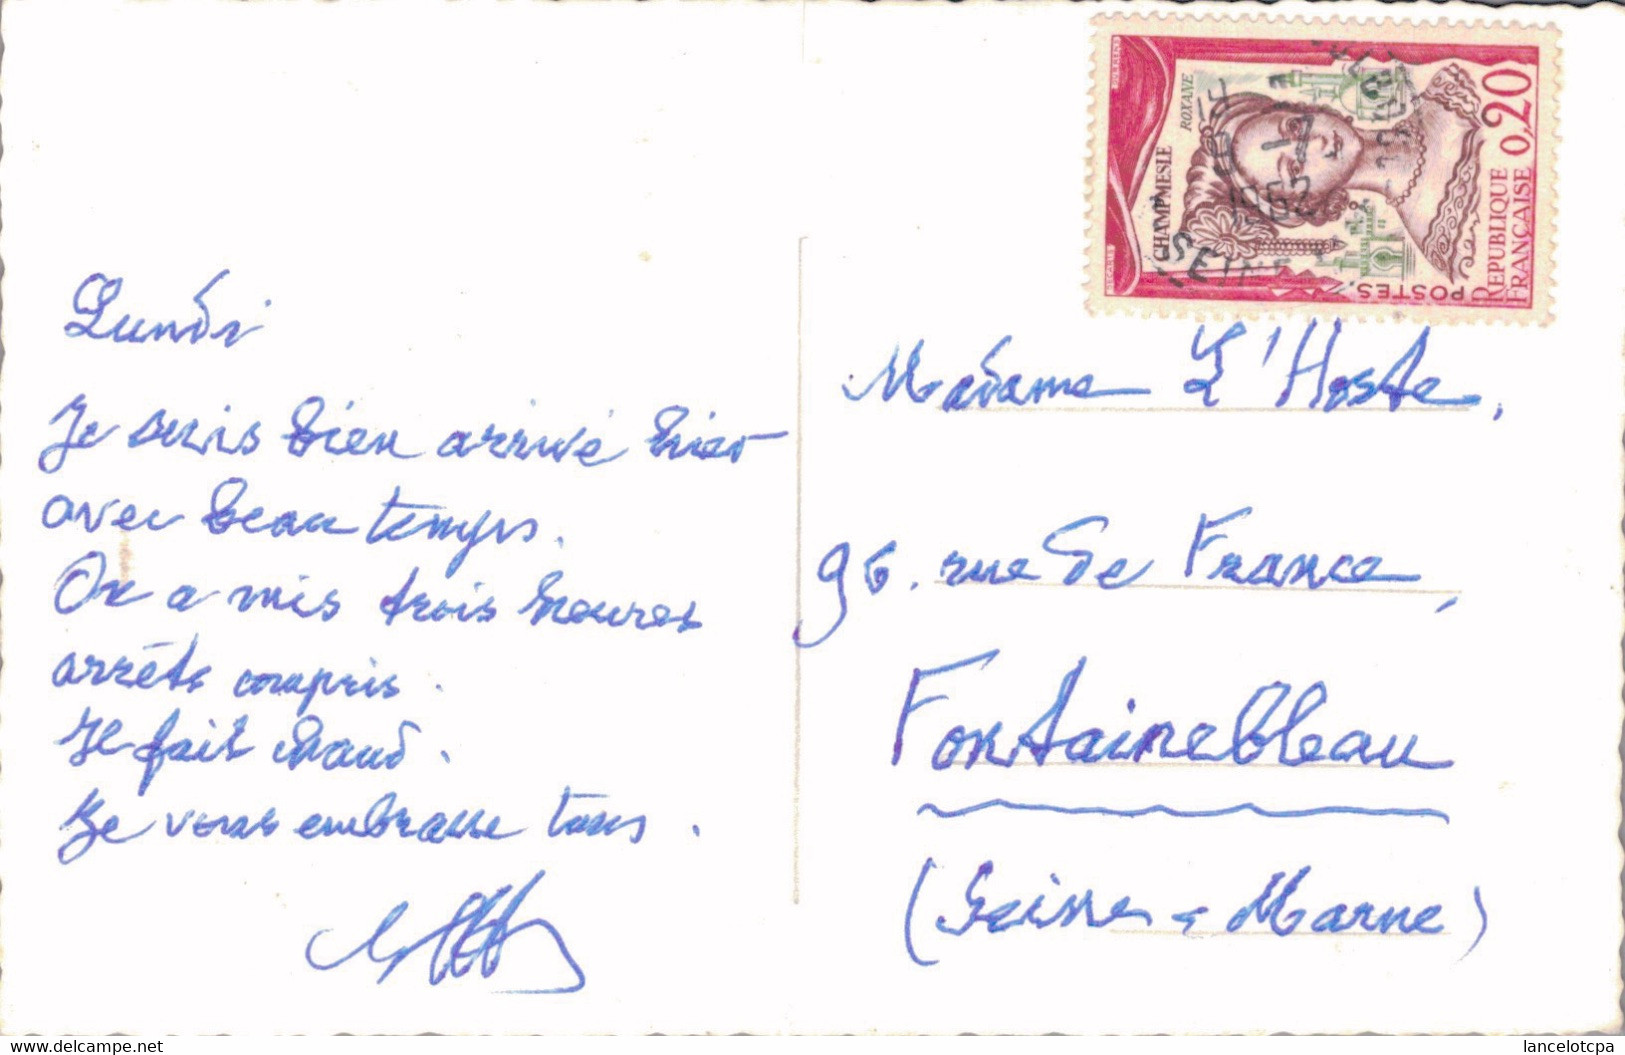 Lundi
Je suis bien arrivé hier
avec beau temps.
On a mis trois heures
arrêts compris.
Il fait chaud.
Je vous embrasse tous.
ROXANE
CHAMPMESLE
POSTES
REPUBLIQUE
FRANÇAISE
0,20
1962
SEINE
Madame L'Hoste,
96. rue de France,
Fontainebleau
(Seine-&-Marne)
www.delcampe.net
lancelotcpa